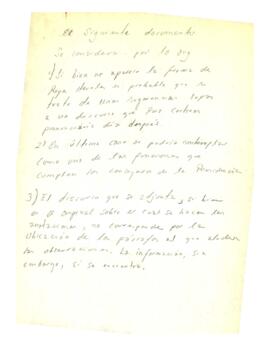 El siguiente documento
se considera por lo sig
1) Si bien no aparece la firma de
Rega es probable que se
trate de unas sugerencias
a un discurso que
pronunciara días después.
2) En última caso se podría contemplar
como una de las funciones que
cumplan los consejeros de la Presidencia
3) El discurso que se adjunta, si bien
es el original sobre el cual se hacen las
anotaciones, no corresponde por la
ubicación de los párrafos al que aluden
las observaciones. La información, sin
embargo, si se encuentra.